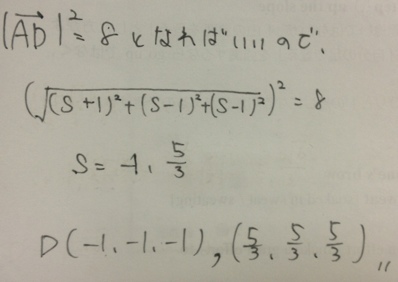 |AD→|² = 8 となればいいので、
(√((S+1)²+(S-1)²+(S-1)²))² = 8
S = -1、5/3
D(-1、-1、-1), (5/3、5/3、5/3)〃